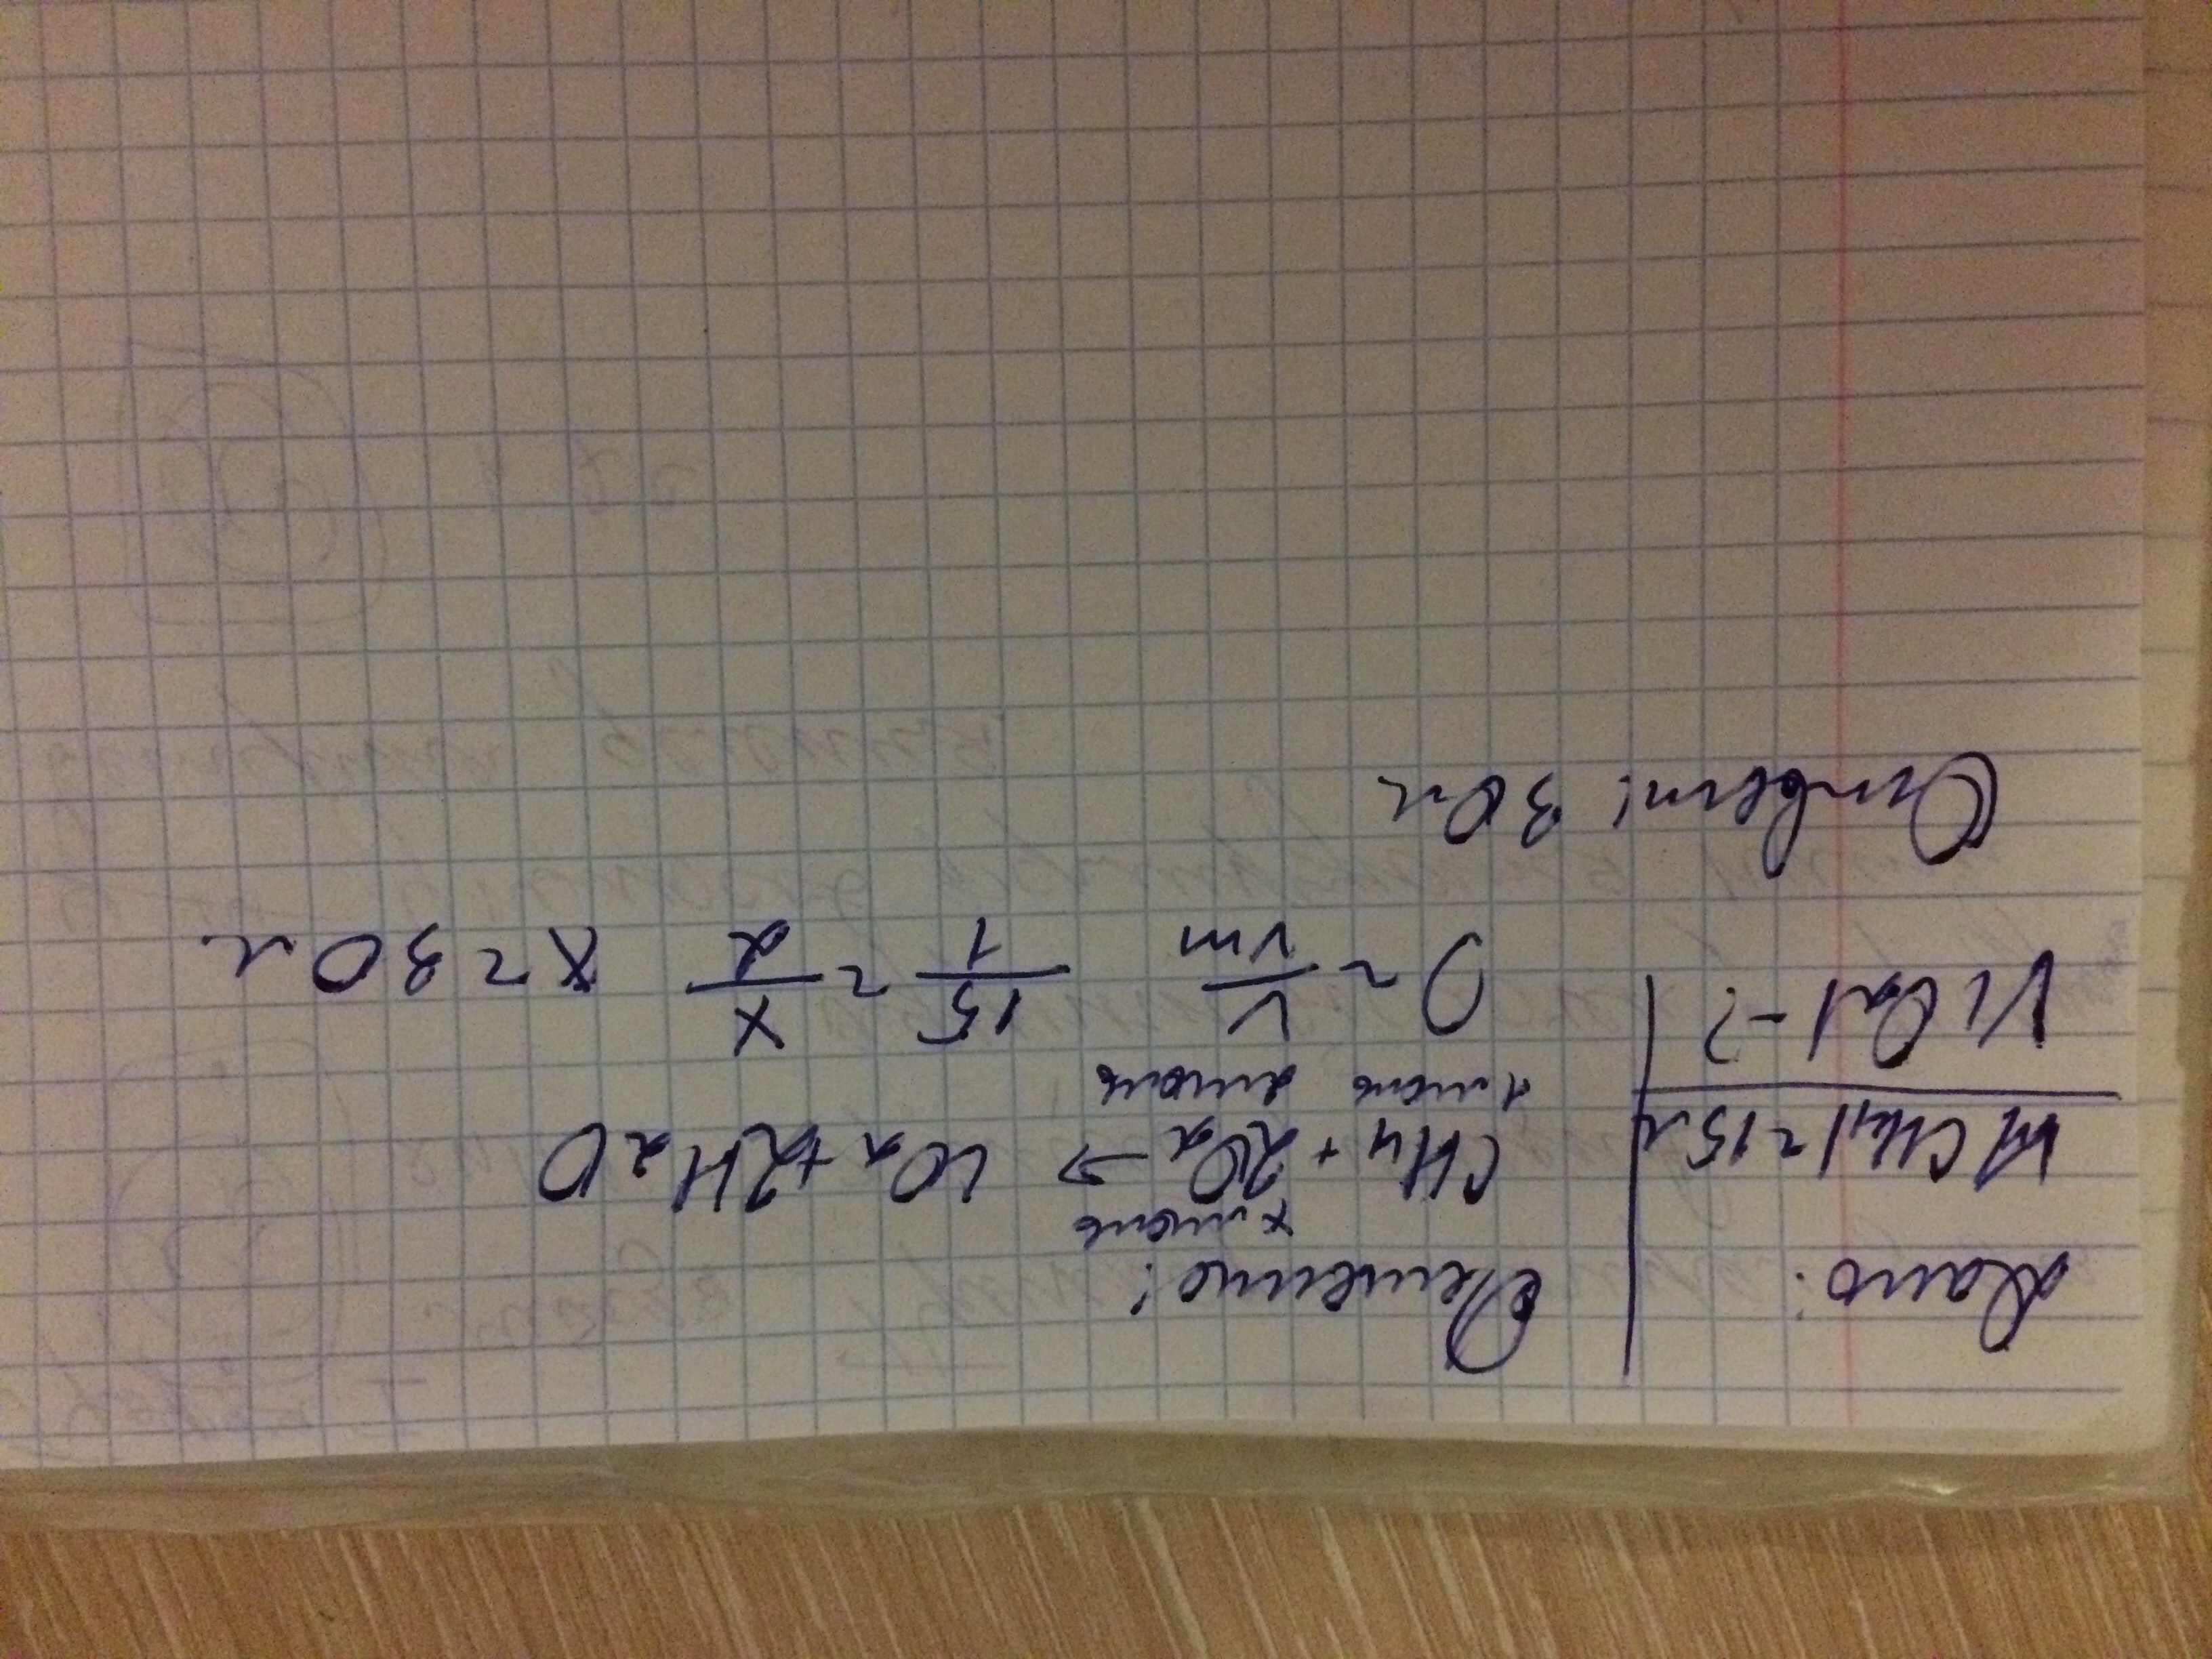 Дано:
V(CH4)=15л
V(O2)-?
Решение:
х моль
CH4+2O2→CO2+2H2O
1 моль 2 моль
V/Vm 15/1=x/2 x=30л
Ответ: 30л